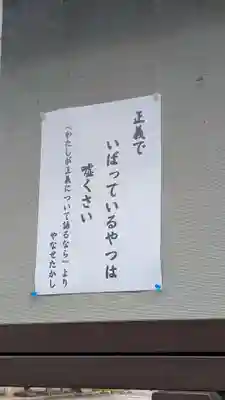 正義で
いばっているやつは
嘘くさい
「わたしが正義について語るなら」より
やなせたかし